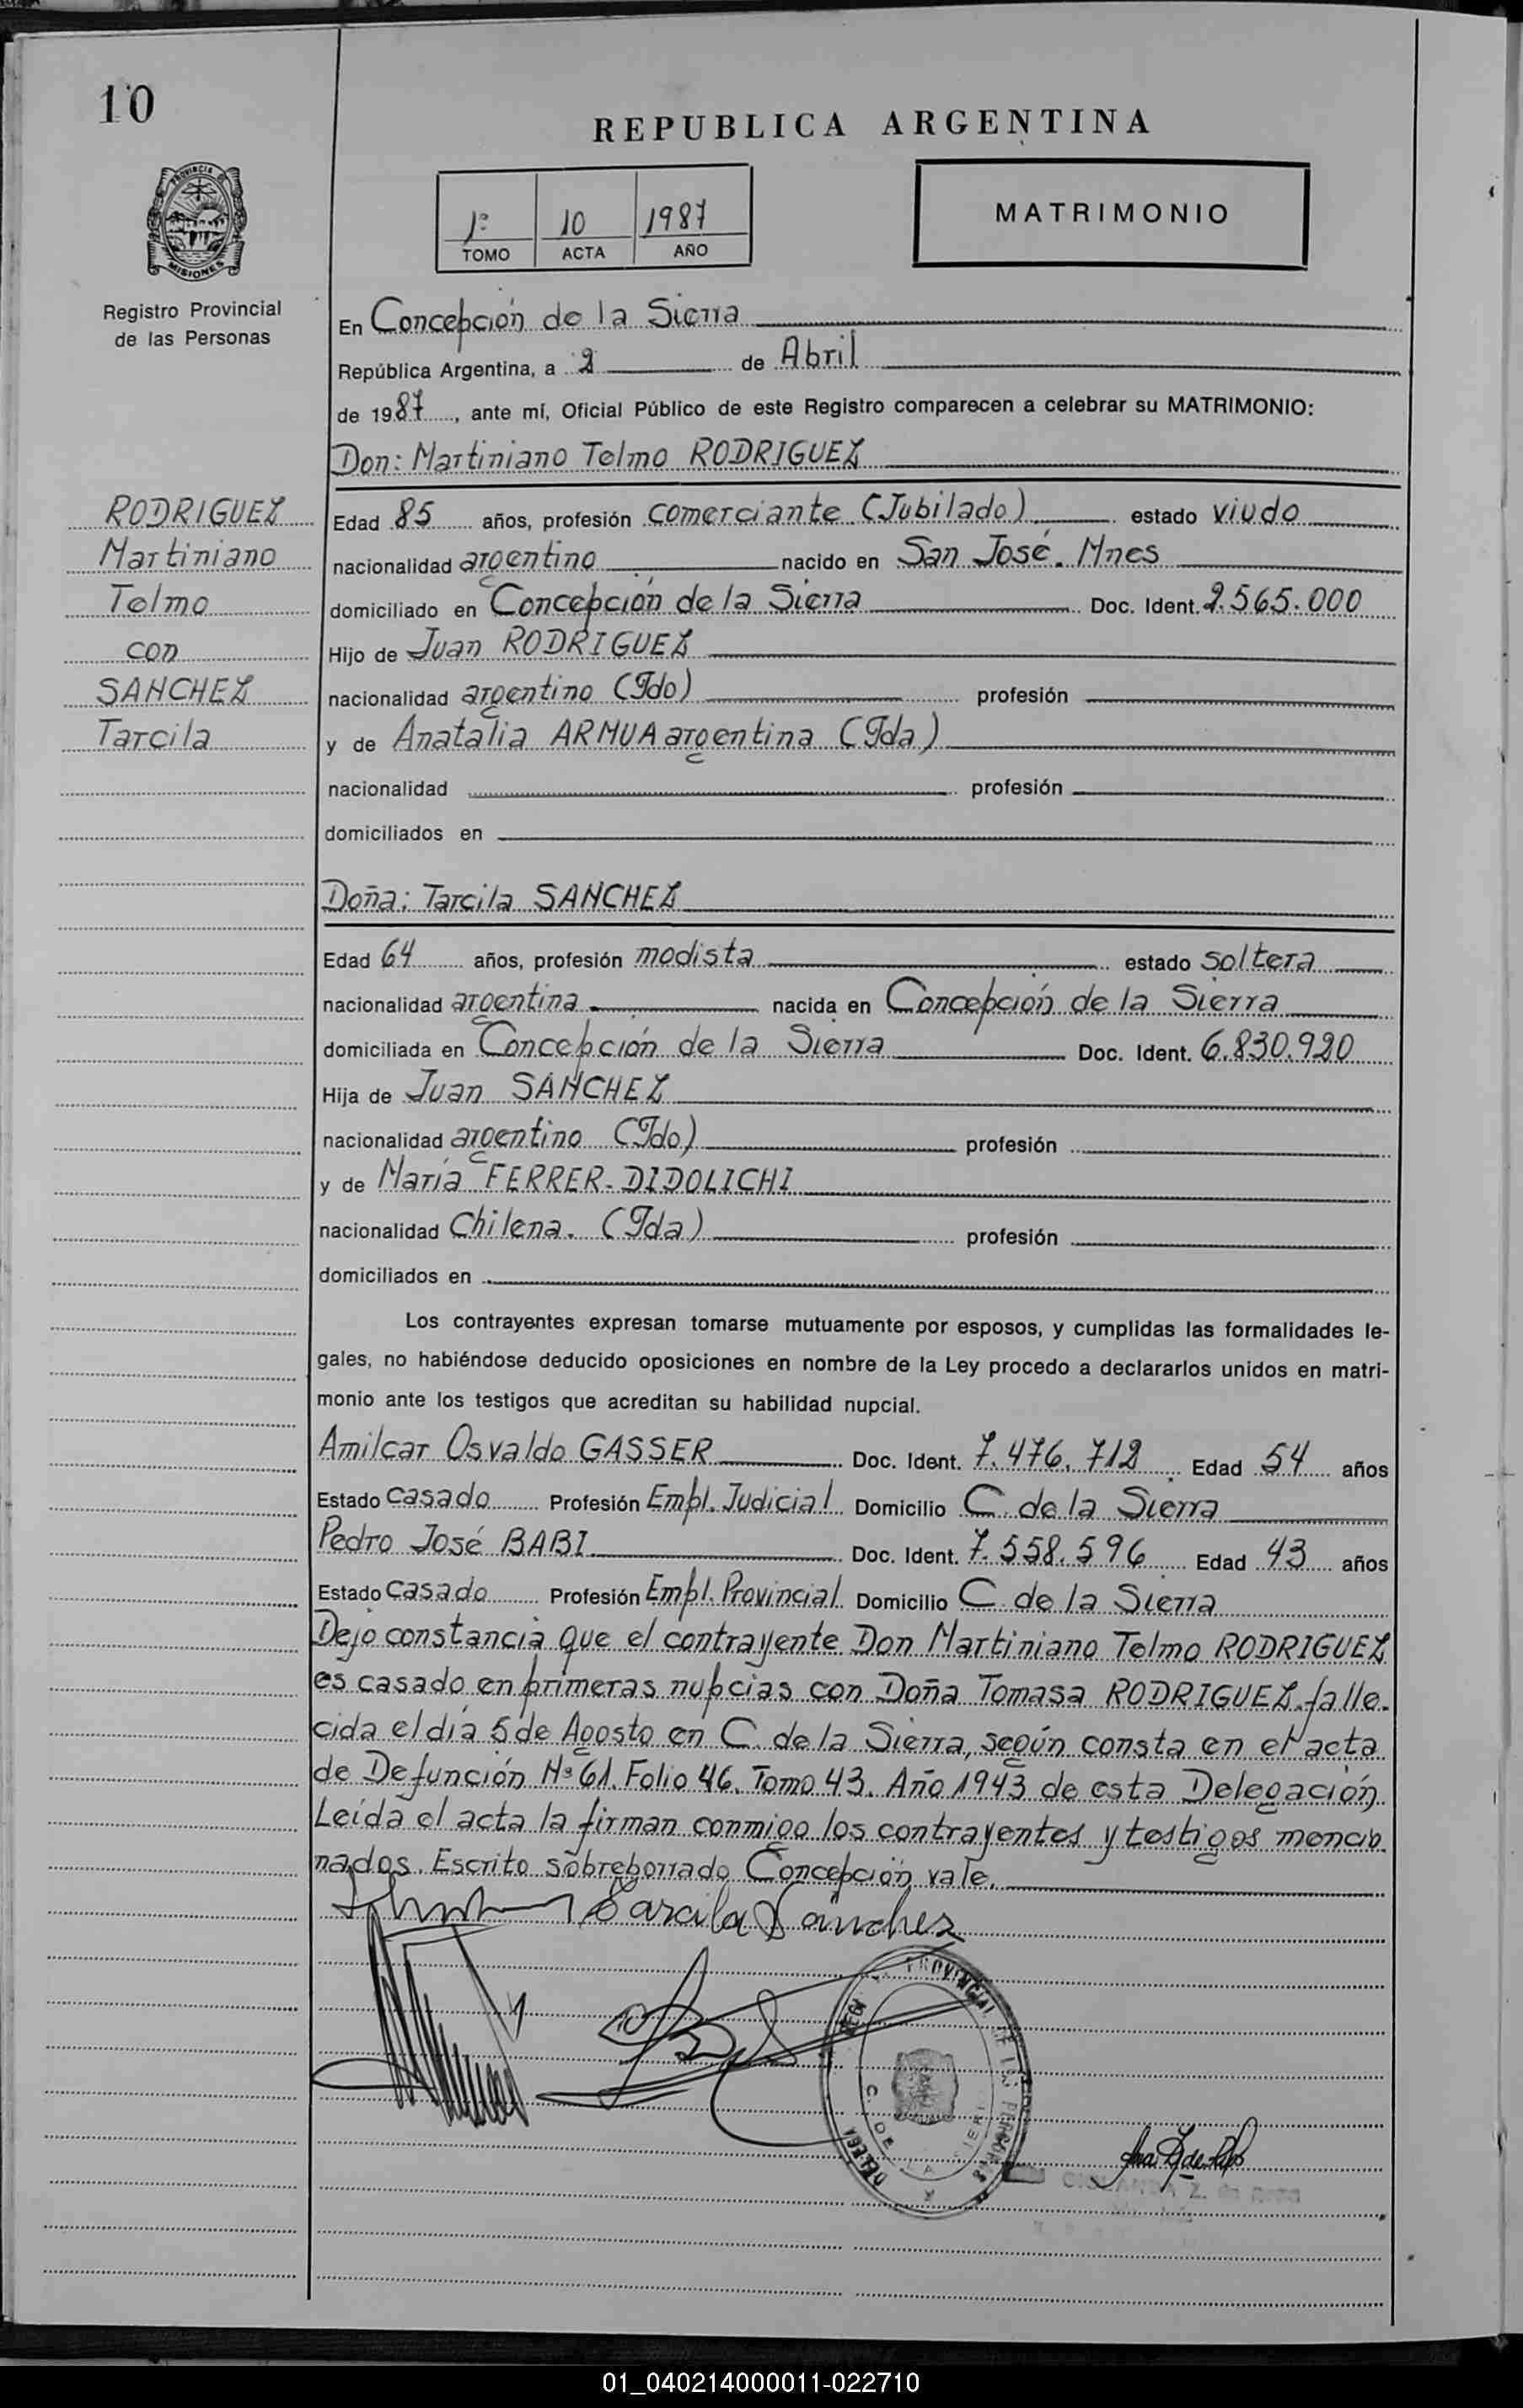 10
REPUBLICA ARGENTINA
PROVINCIA DE
MISIONES
1º 10 1987
TOMO ACTA AÑO
MATRIMONIO
Registro Provincial
de las Personas
En Concepción de la Sierra
República Argentina, a 2 de Abril
de 1987, ante mí, Oficial Público de este Registro comparecen a celebrar su MATRIMONIO:
Don: Martiniano Telmo RODRIGUEZ
RODRIGUEZ
Martiniano
Telmo
con
SANCHEZ
Tarcila
Edad 85 años, profesión comerciante (Jubilado) estado viudo
nacionalidad argentino nacido en San José. Mnes
domiciliado en Concepción de la Sierra Doc. Ident. 2.565.000
Hijo de Juan RODRIGUEZ
nacionalidad argentino (Fdo) profesión
y de Anatalia ARMUA argentina (Fda)
nacionalidad profesión
domiciliados en
Doña: Tarcila SANCHEZ
Edad 64 años, profesión modista estado soltera
nacionalidad argentina. nacida en Concepción de la Sierra
domiciliada en Concepción de la Sierra Doc. Ident. 6.830.920
Hija de Juan SANCHEZ
nacionalidad argentino (Fdo) profesión
y de María FERRER-DIDOLICHI
nacionalidad Chilena. (Fda) profesión
domiciliados en
Los contrayentes expresan tomarse mutuamente por esposos, y cumplidas las formalidades le-
gales, no habiéndose deducido oposiciones en nombre de la Ley procedo a declararlos unidos en matri-
monio ante los testigos que acreditan su habilidad nupcial.
Amilcar Osvaldo GASSER Doc. Ident. 7.476.712 Edad 54 años
Estado casado Profesión Empl. Judicial Domicilio C. de la Sierra
Pedro José BABI Doc. Ident. 7.558.596 Edad 43 años
Estado casado Profesión Empl. Provincial Domicilio C. de la Sierra
Dejo constancia que el contrayente Don Martiniano Telmo RODRIGUEZ
es casado en primeras nupcias con Doña Tomasa RODRIGUEZ.falle-
cida el día 5 de Agosto en C. de la Sierra, según consta en el acta
de Defunción Nº 61. Folio 46. Tomo 43. Año 1943 de esta Delegación.
Leída el acta la firman conmigo los contrayentes y testigos mencio
nados. Escrito sobreborrado Concepción vale.
Tarcila Sanchez
PROVINCIAL DE LAS PERSONAS
C. DE LA SIERRA
01_040214000011-022710